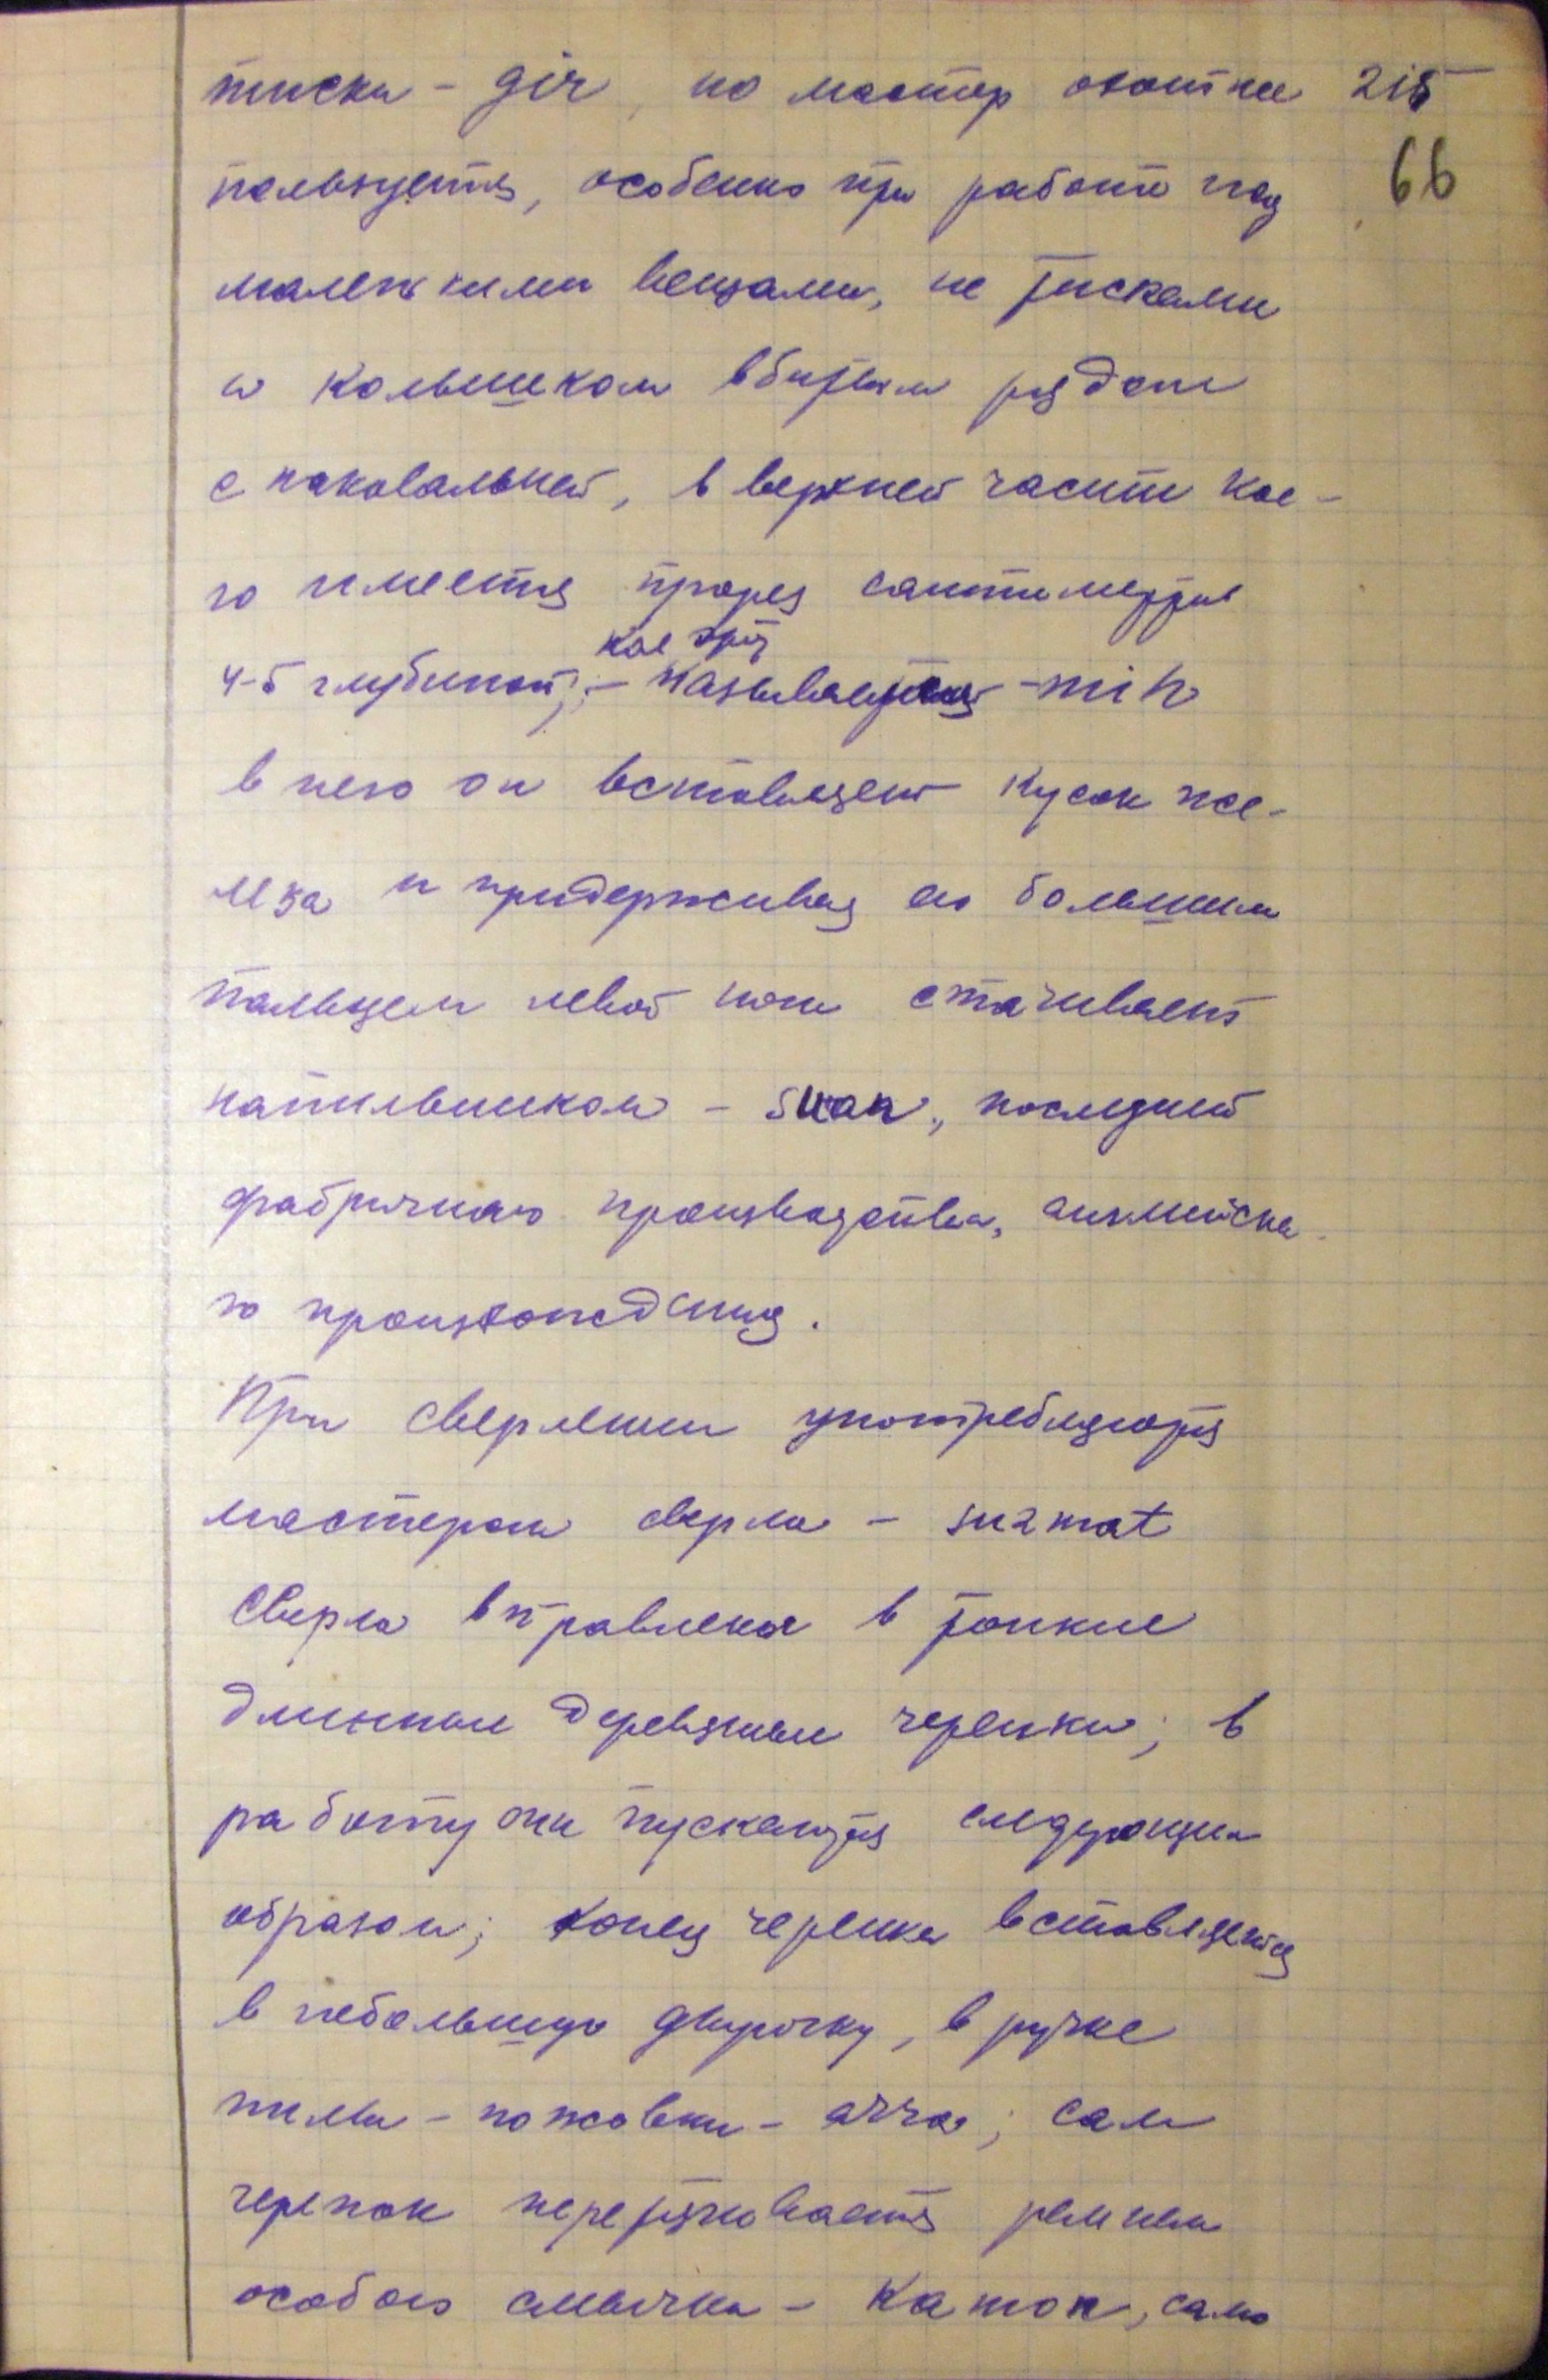 тиски - gir, но мастер охотнее 215
пользуется, особенно при работе над 66
маленькими вещами, не тисками
а колышком вбитым рядом
с наковальней, в верхней части кое-
го имеется прорез сантиметров
4-5 глубиной; - называется - mih
в него он вставляет кусок же-
леза и придерживая его большим
пальцем левой ноги стачивает
напильником - suan, последний
фабричного производства, английско
го происхождения.
При сверлении употребляются
мастером сверла - surmat
Сверла вправлены в тонкие
длинные деревянные черенки; в
работу они пускаются следующим
образом; конец черенка вставляется
в небольшую дырочку, в ручке
пилы - ножовки - arra; сам
черенок перетягивается ремнем
особого смычка - Kamon, само